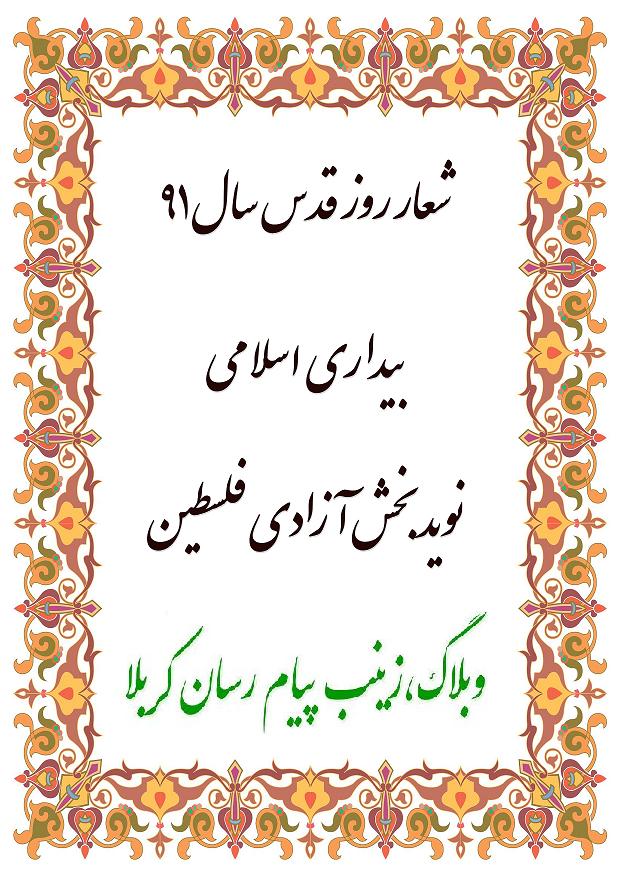 شعار روز قدس سال ۹۱
بیداری اسلامی
نوید بخش آزادی فلسطین
وبلاگ،زینب پیام رسان کربلا